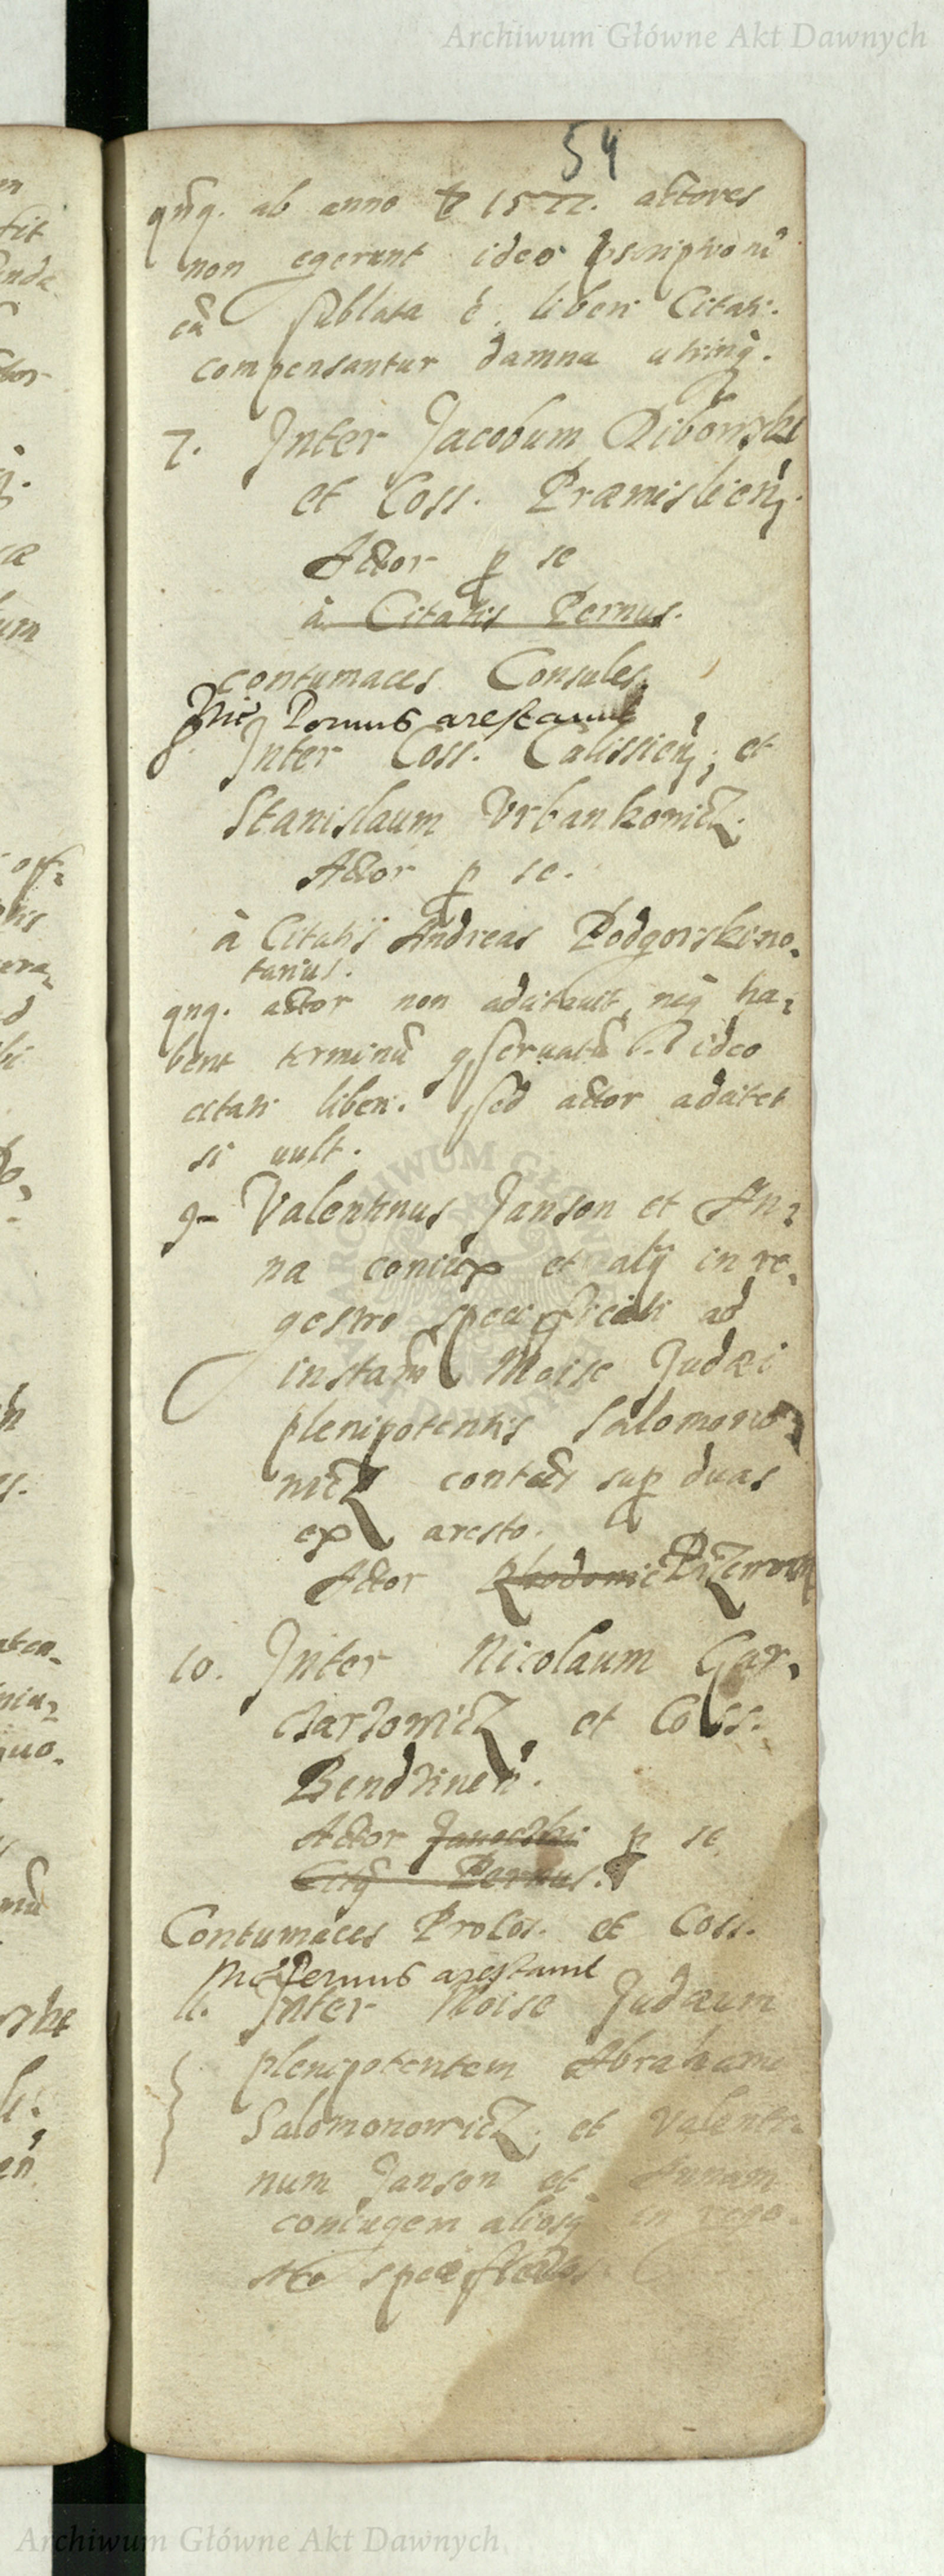 Archiwum Główne Akt Dawnych
54
qn̄q. ab anno 1577. actores
non egerunt ideo
eā sublata ē. liberi Citati.
compensantur damna utrinq̄.
7. Inter Jacobum Ribowski
et Coss. Præmislien̄.
Actor p se
à Citatis Pernus.
contumaces Consules.
Pernus arestauit
8. Inter Coss. Calissien̄; et
Stanislaum Vrbankowicz.
Actor p se.
à Citatis Andreas Podgorski no-
tarius.
qnq. actor non adcitauit, neq̄ ha-
bent terminū ideo
citati liberi. sed actor adcitet
si uult.
9 Valentinus Janson et An-
na coniūx et alij in re-
gestro specificati ad
instam̄ Moise Judæi
plenipotentis Salomono
wicz sup duas
ex aresto.
Actor
10. Inter Nicolaum Gar-
czarzowicz, et Coss.
Bendzinen̄.
Actor p se
Pernus.
Contumaces Procos. et Coss.
Pernus arestauit
11. Inter Moise Judæum
plenipotentem Abrahami
Salomonowicz, et Valenti-
num Janson et Annam
coniugem aliosq̄ in rege-
stro
Archiwum Główne Akt Dawnych